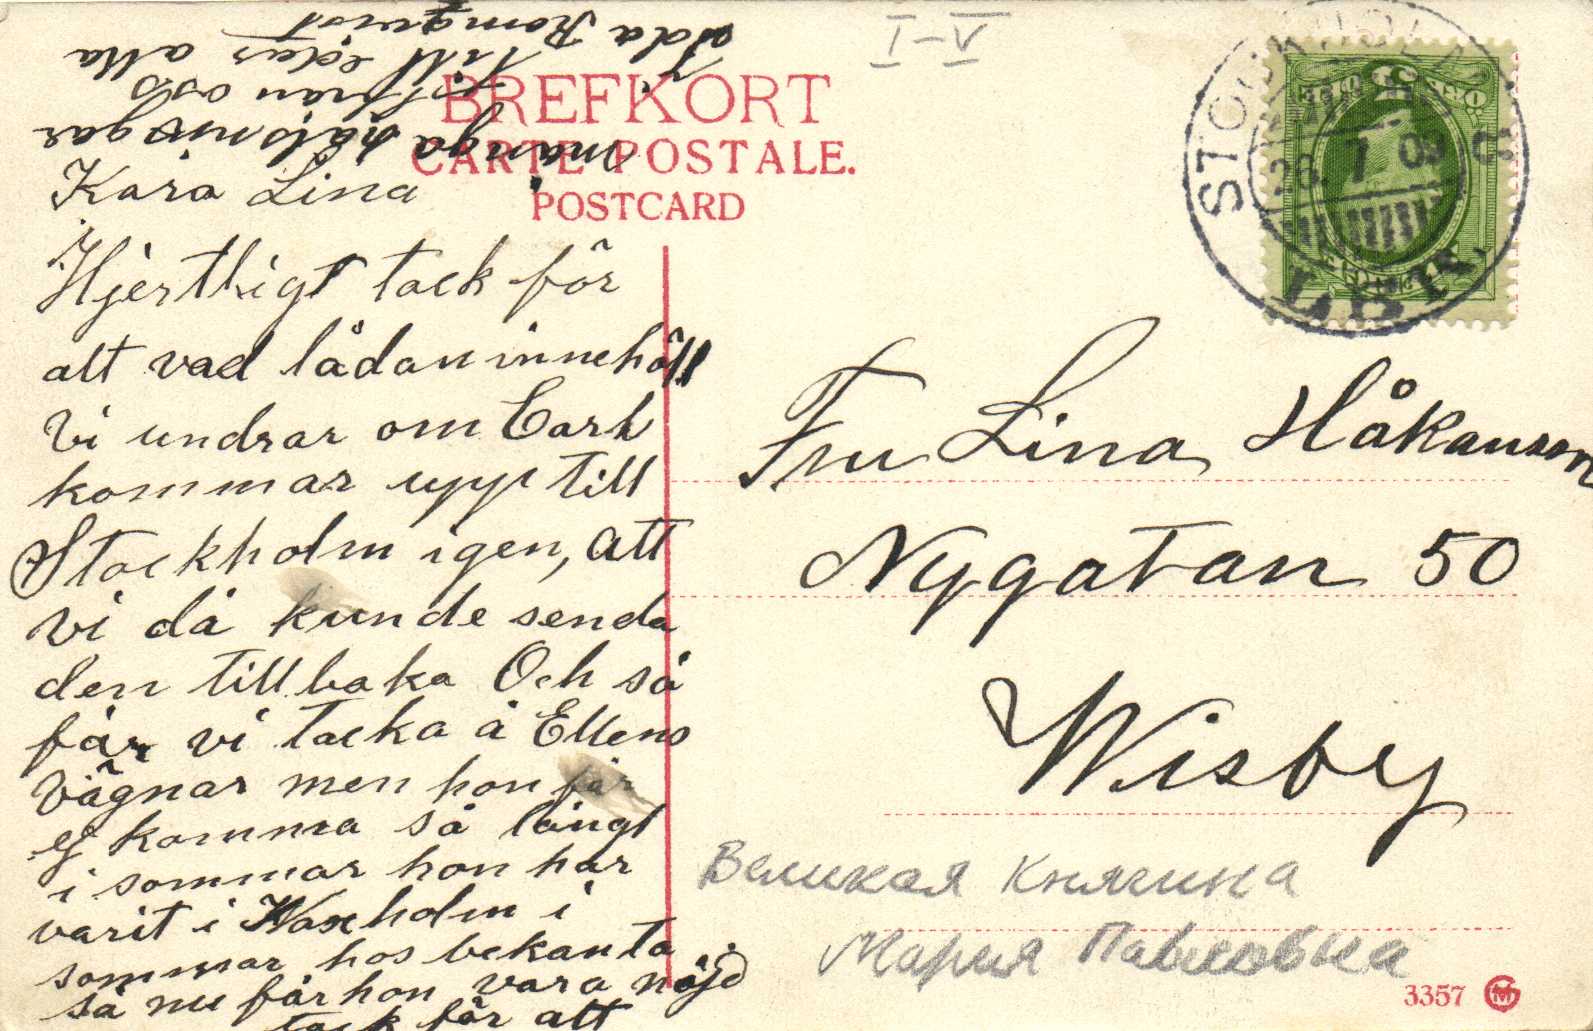 I-V
BREFKORT
CARTE POSTALE.
POSTCARD
STOCKHOLM
28 7 09
LBR.
Kära Lina
Hjertligt tack för
alt vad lådan innehöll
Vi undrar om Carl
kommar upp till
Stockholm igen, att
vi då kunde senda
den tillbaka Och så
får vi tacka å Ellens
Vägnar men hon får
ej komma så långt
i sommar hon har
varit i Waxholm i
sommar hos bekanta
så nu får hon vara nöjd
tack för alt
många hälsningar
från oss
till eder alla
Ida Romqvist
Fru Lina Håkanson
Nygatan 50
Wisby
Великая Княгина
Мария Павловна
3357